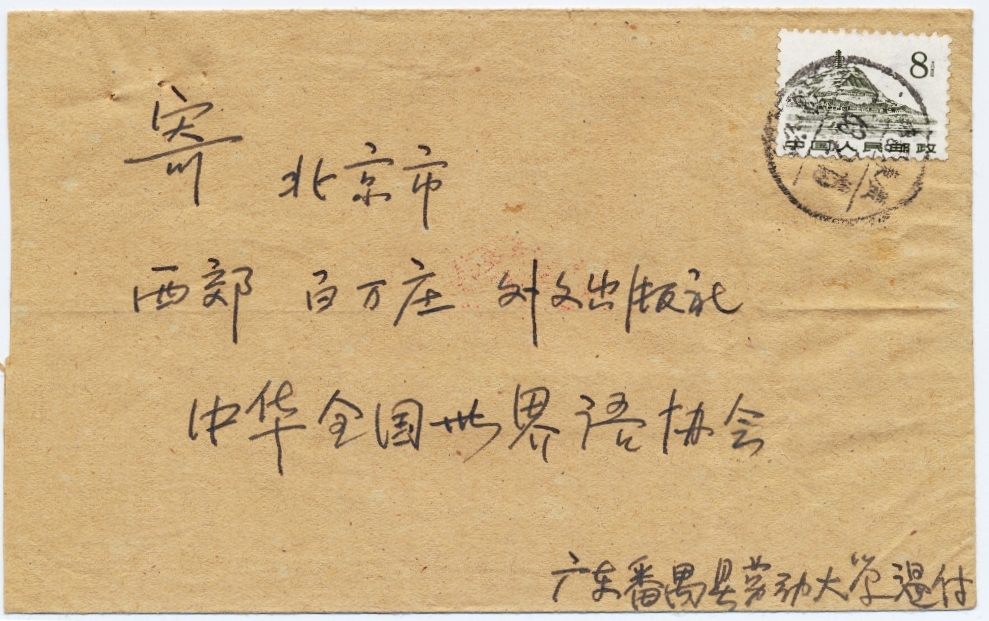 8分
中国人民邮政
寄 北京市
西郊 百万庄 外文出版社
中华全国世界语协会
广东番禺县劳动大学退付